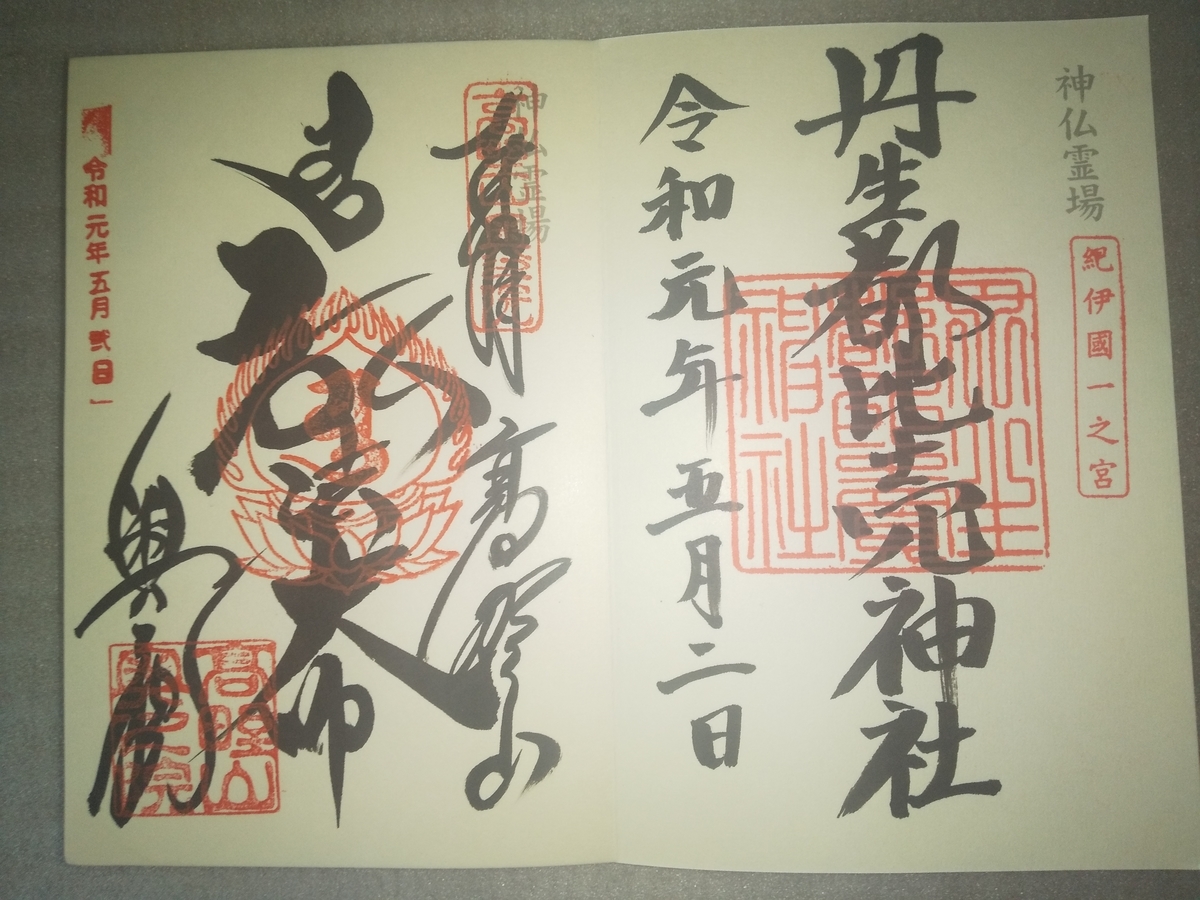 神仏霊場
紀伊國一之宮
丹生都比売神社
丹生都比賣神社
令和元年五月二日
神仏霊場
奉拝
高野山
弘法大師
奥之院
高野山奥之院
令和元年五月弐日